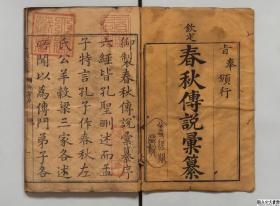 旨奉頒行
欽定
春秋傳說彙纂
御製春秋傳說彙纂序
六經皆孔聖刪述而孟
子特言孔子作春秋左
氏公羊穀梁三家各述
所聞以為傳門弟子各